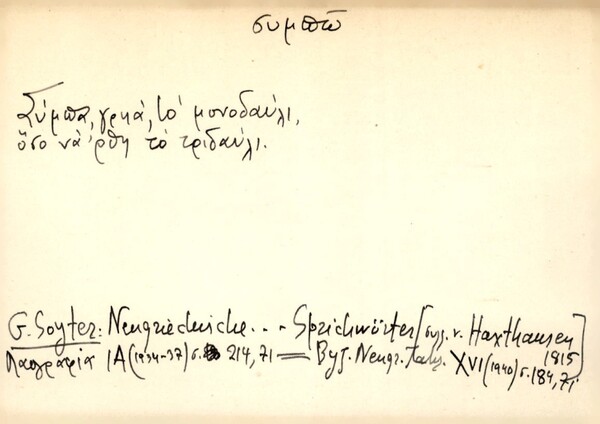 συμπῶ
Σύμπα, γρηά, το' μονοδαύλι,
ὅσο νὰ 'ρθῃ τὸ τριδαύλι.
G. Soyter: Neugriechische... Sprichwörter [συλλ. v. Haxthausen
1815]
Λαογραφία ΙΑ (1934-37) σ. 214, 71 = Byz. Neugr. Jahr. XVI (1940) σ. 184, 71